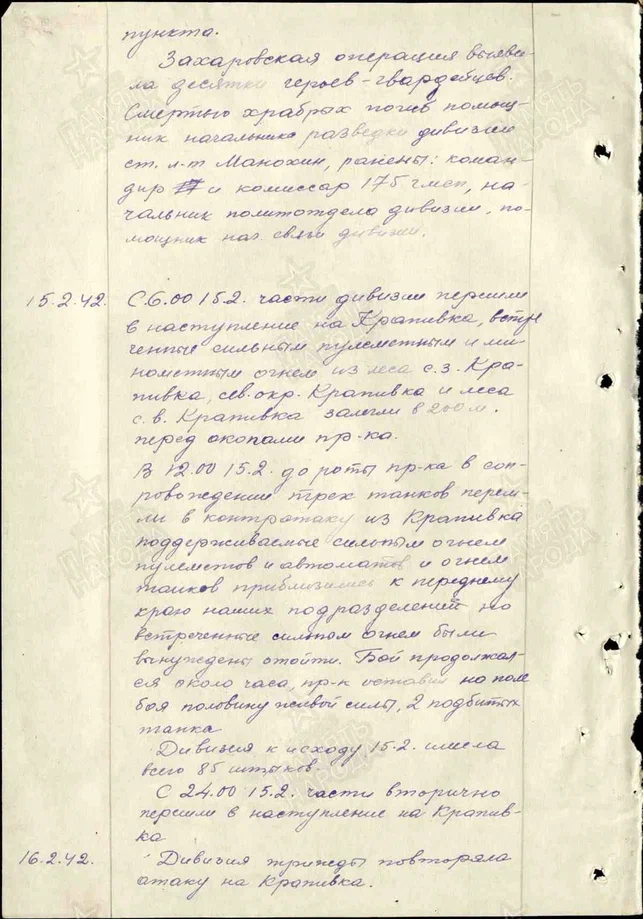 пункта.
Захаровская операция выяви-
ла десятки героев-гвардейцев.
Смертью храбрых погиб помощ-
ник начальника разведки дивизии
ст. л-т Манохин, ранены: коман-
дир и комиссар 175 гмсп, на-
чальник политотдела дивизии, по-
мощник нач. связи дивизии.
15.2.42. С 6.00 15.2. части дивизии перешли
в наступление на Крапивка, встре
ченные сильным пулеметным и ми-
нометным огнем из леса с.з. Кра-
пивка, сев. окр. Крапивка и леса
с.в. Крапивка залегли в 200 м.
перед окопами пр-ка.
В 12.00 15.2. до роты пр-ка в соп-
ровождении трех танков переш-
ли в контратаку из Крапивка
поддерживаемые сильным огнем
пулеметов и автоматов и огнем
танков приблизились к переднему
краю наших подразделений но
встреченные сильным огнем были
вынуждены отойти. Бой продолжал-
ся около часа, пр-к оставил на поле
боя половину живой силы, 2 подбитых
танка
Дивизия к исходу 15.2. имела
всего 85 штыков.
С 24.00 15.2. части вторично
перешли в наступление на Крапив-
ка
16.2.42. Дивизия трижды повторяла
атаку на Крапивка.
ПАМЯТЬ НАРОДА